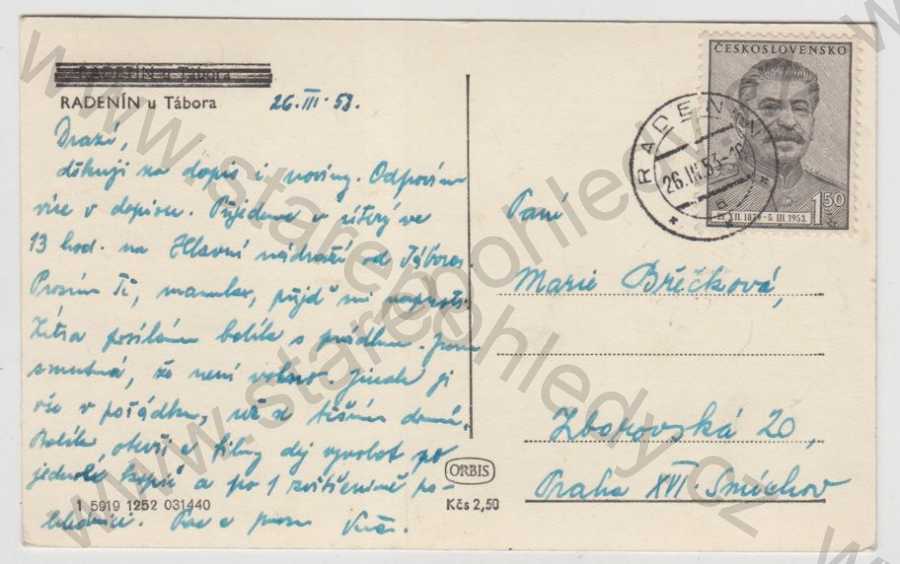 RADENÍN u Tábora
RADENÍN u Tábora
26.III.53.
Drazí,
děkuji za dopis i noviny. Odpovím
více v dopisu. Přijedeme v úterý ve
13 hod. na Hlavní nádraží od Tábora.
Prosím Tě, maminko, přijď mi naproti.
Zítra posílám balík s prádlem. Jsem
smutná, že není volno. Jinak je
vše v pořádku, už se těším domů.
Balík otevři a filmy dej vyvolat po
jedné kopii a po 1 zvětšenině po-
hlednici. Pa a pusu
1 5919 1252 031440
ORBIS
Kčs 2,50
ČESKOSLOVENSKO
1,50
21. XII. 1879 - 5. III. 1953
RADENÍN
26.III.53-
a
Paní
Marie Brěčková,
Zborovská 20,
Praha XVI - Smíchov
www.starepohledy.cz